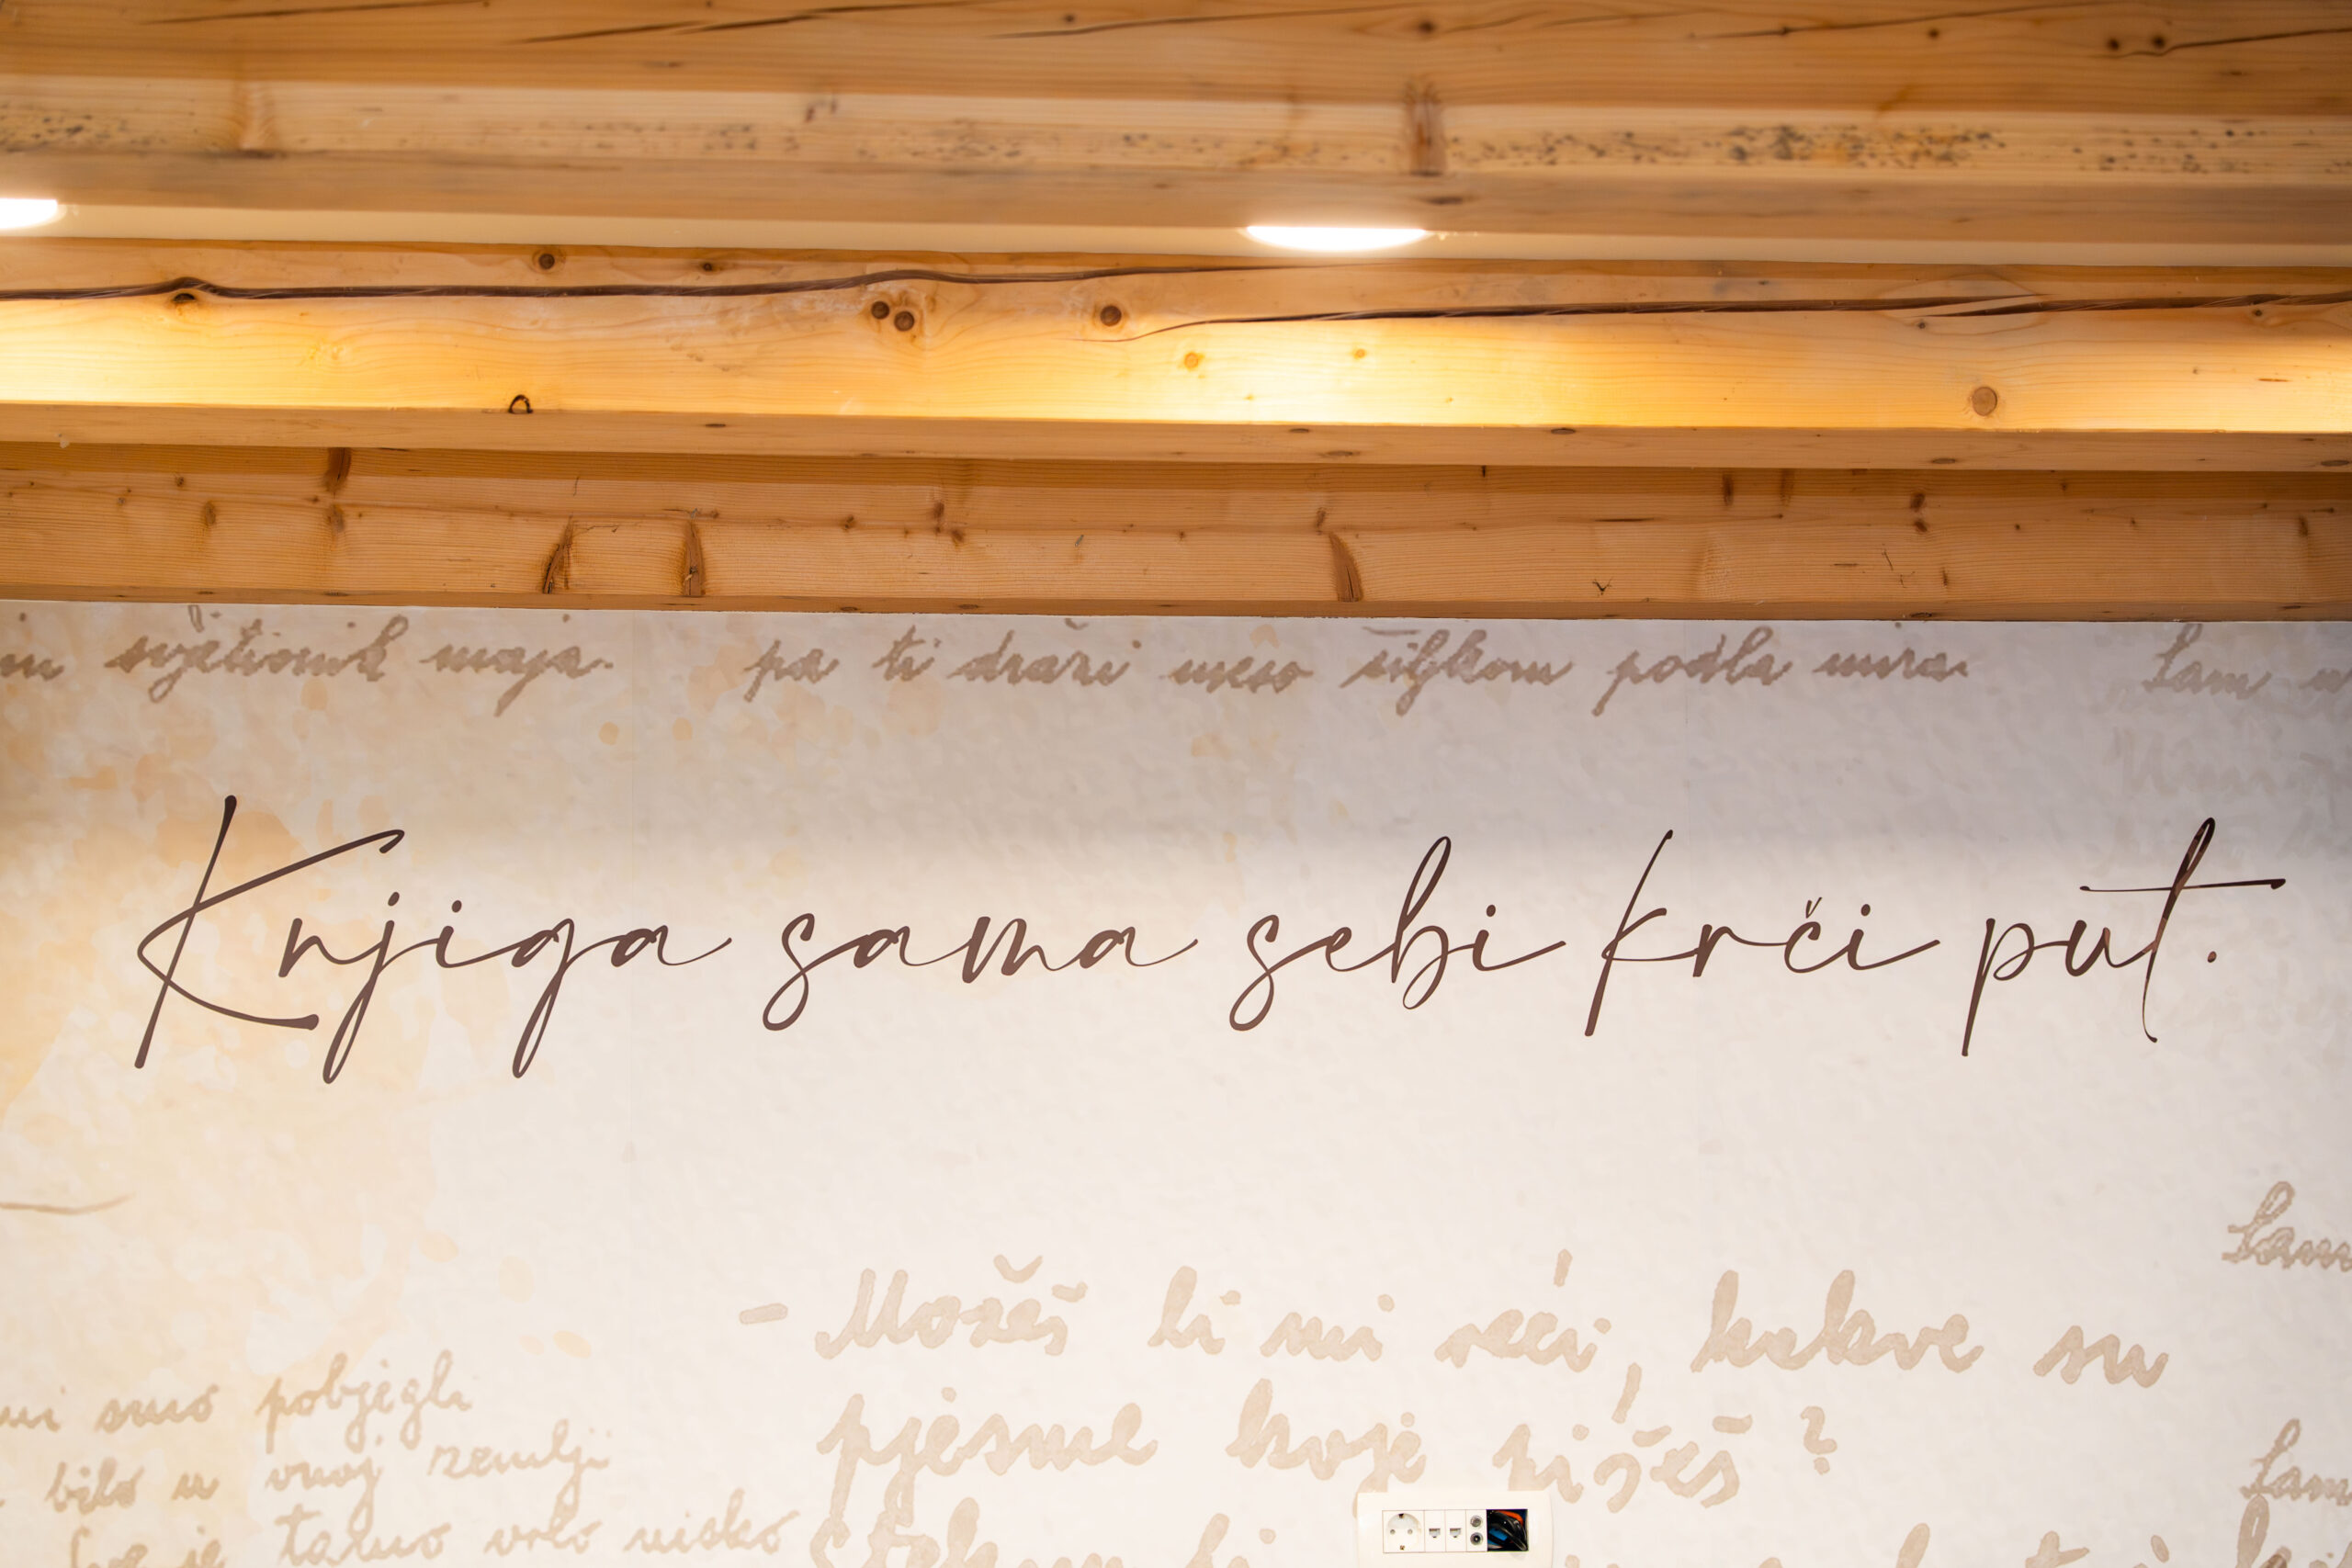 svjetionik maja. pa ti draži meso šiljkom podla mira. Sam
Knjiga sama sebi krči put.
Sam
- Možeš li mi reći, kakve su
smo pobjegli pjesme koje pišeš?
bilo u ovoj zemlji Sam
je tamo vrlo visko